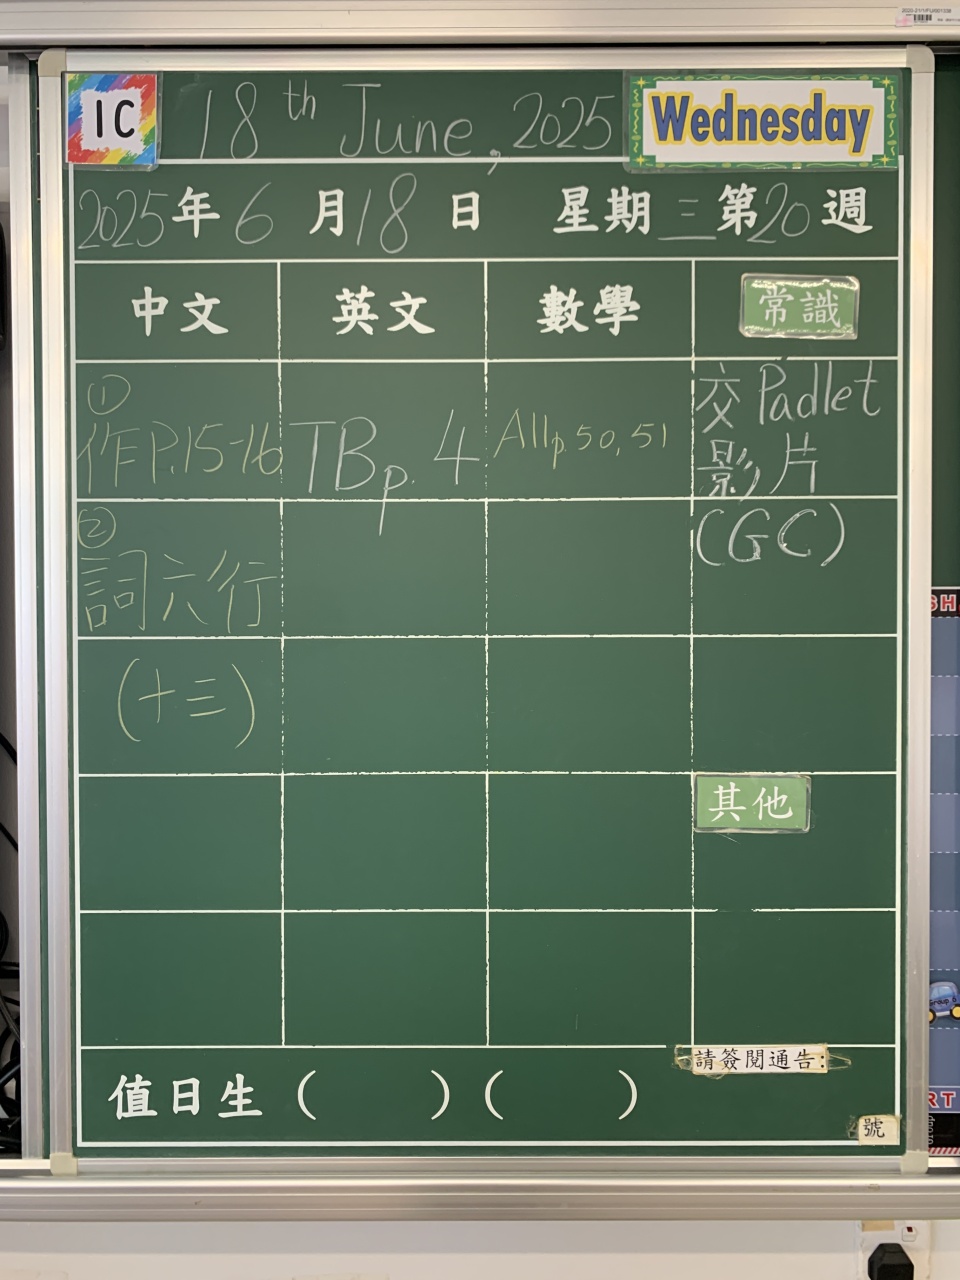 1C 18th June, 2025 Wednesday
2025年6月18日 星期三第20週
中文 英文 數學 常識
①
作P.15-16 TBp. 4 Allp.50,51 交Padlet
影片
②
詞六行 (GC)
(十三)
其他
請簽閱通告:
值日生 ( ) ( )
號
Group 6